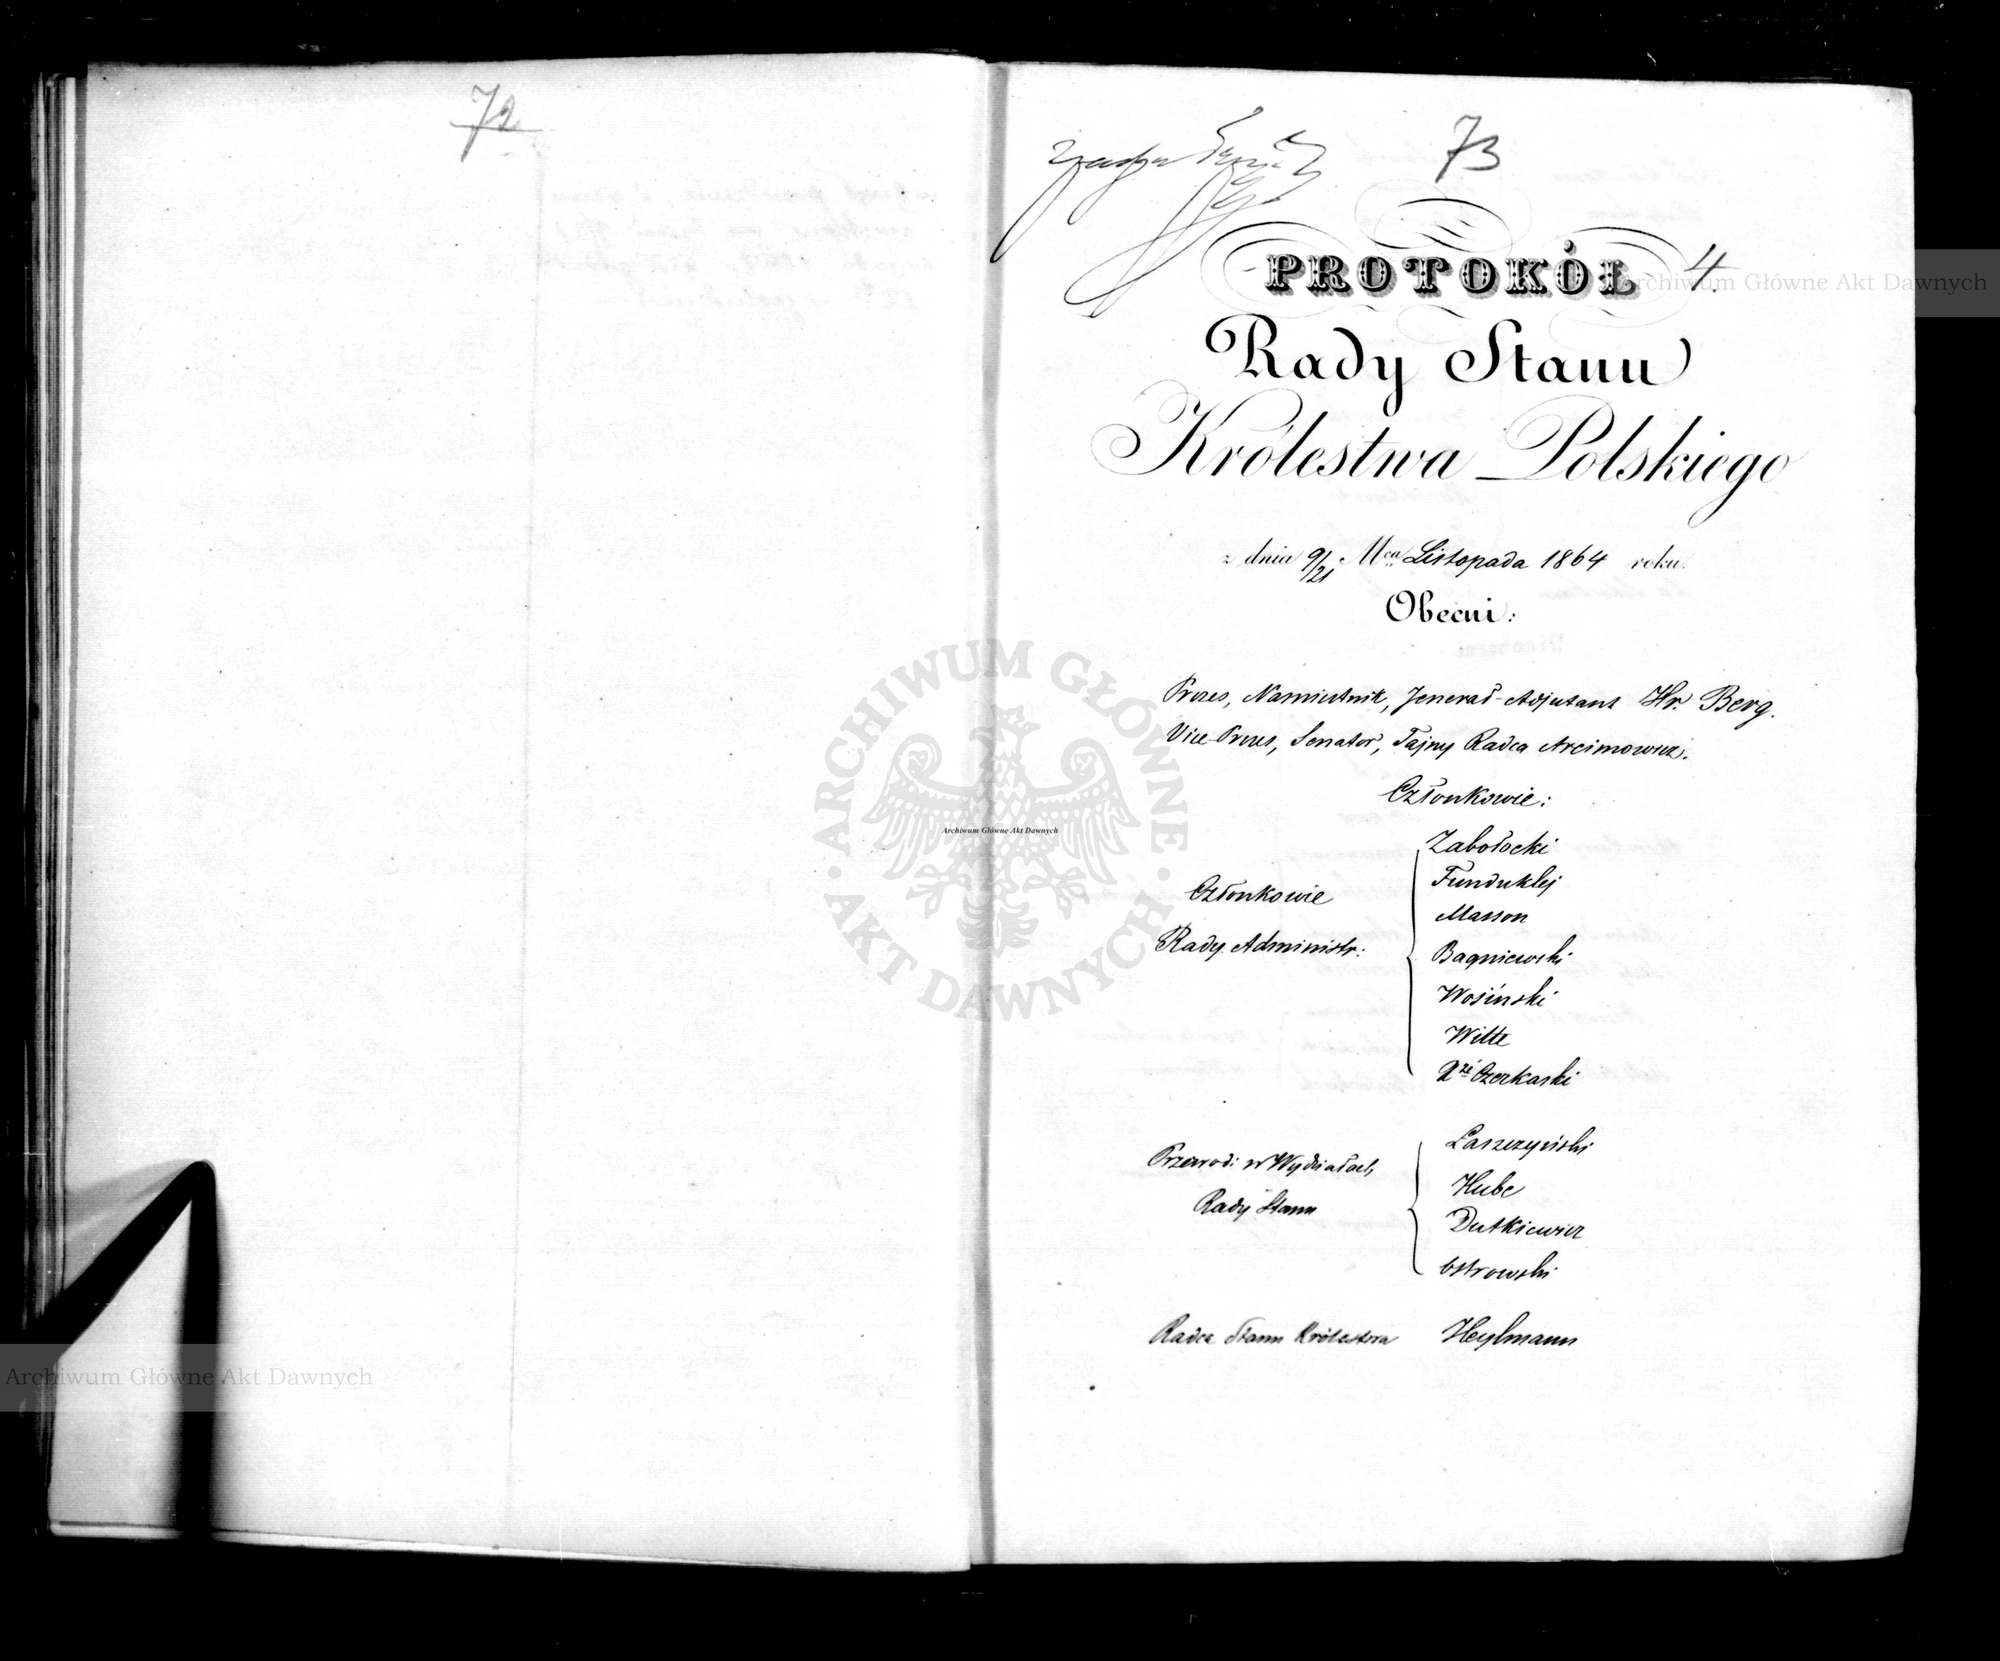 72
73
PROTOKÓŁ 4.
Rady Stanu
Królestwa Polskiego
z dnia 9/21 Mca Listopada 1864 roku.
Obecni:
Prezes, Namiestnik, Jenerał-Adjutant Hr. Berg.
Vice-Prezes, Senator, Tajny Radca Arcimowicz.
Członkowie:
Członkowie
Rady Administr:
Zabołocki
Funduklej
Masson
Bagniewski
Wosiński
Witte
Xżę Czerkaski
Przewod: w Wydziałach
Rady Stanu
Łaszczyński
Hube
Dutkiewicz
Ostrowski
Radca Stanu Królestwa Heylmann
Archiwum Główne Akt Dawnych
ARCHIWUM GŁÓWNE
AKT DAWNYCH
Archiwum Główne Akt Dawnych
Archiwum Główne Akt Dawnych